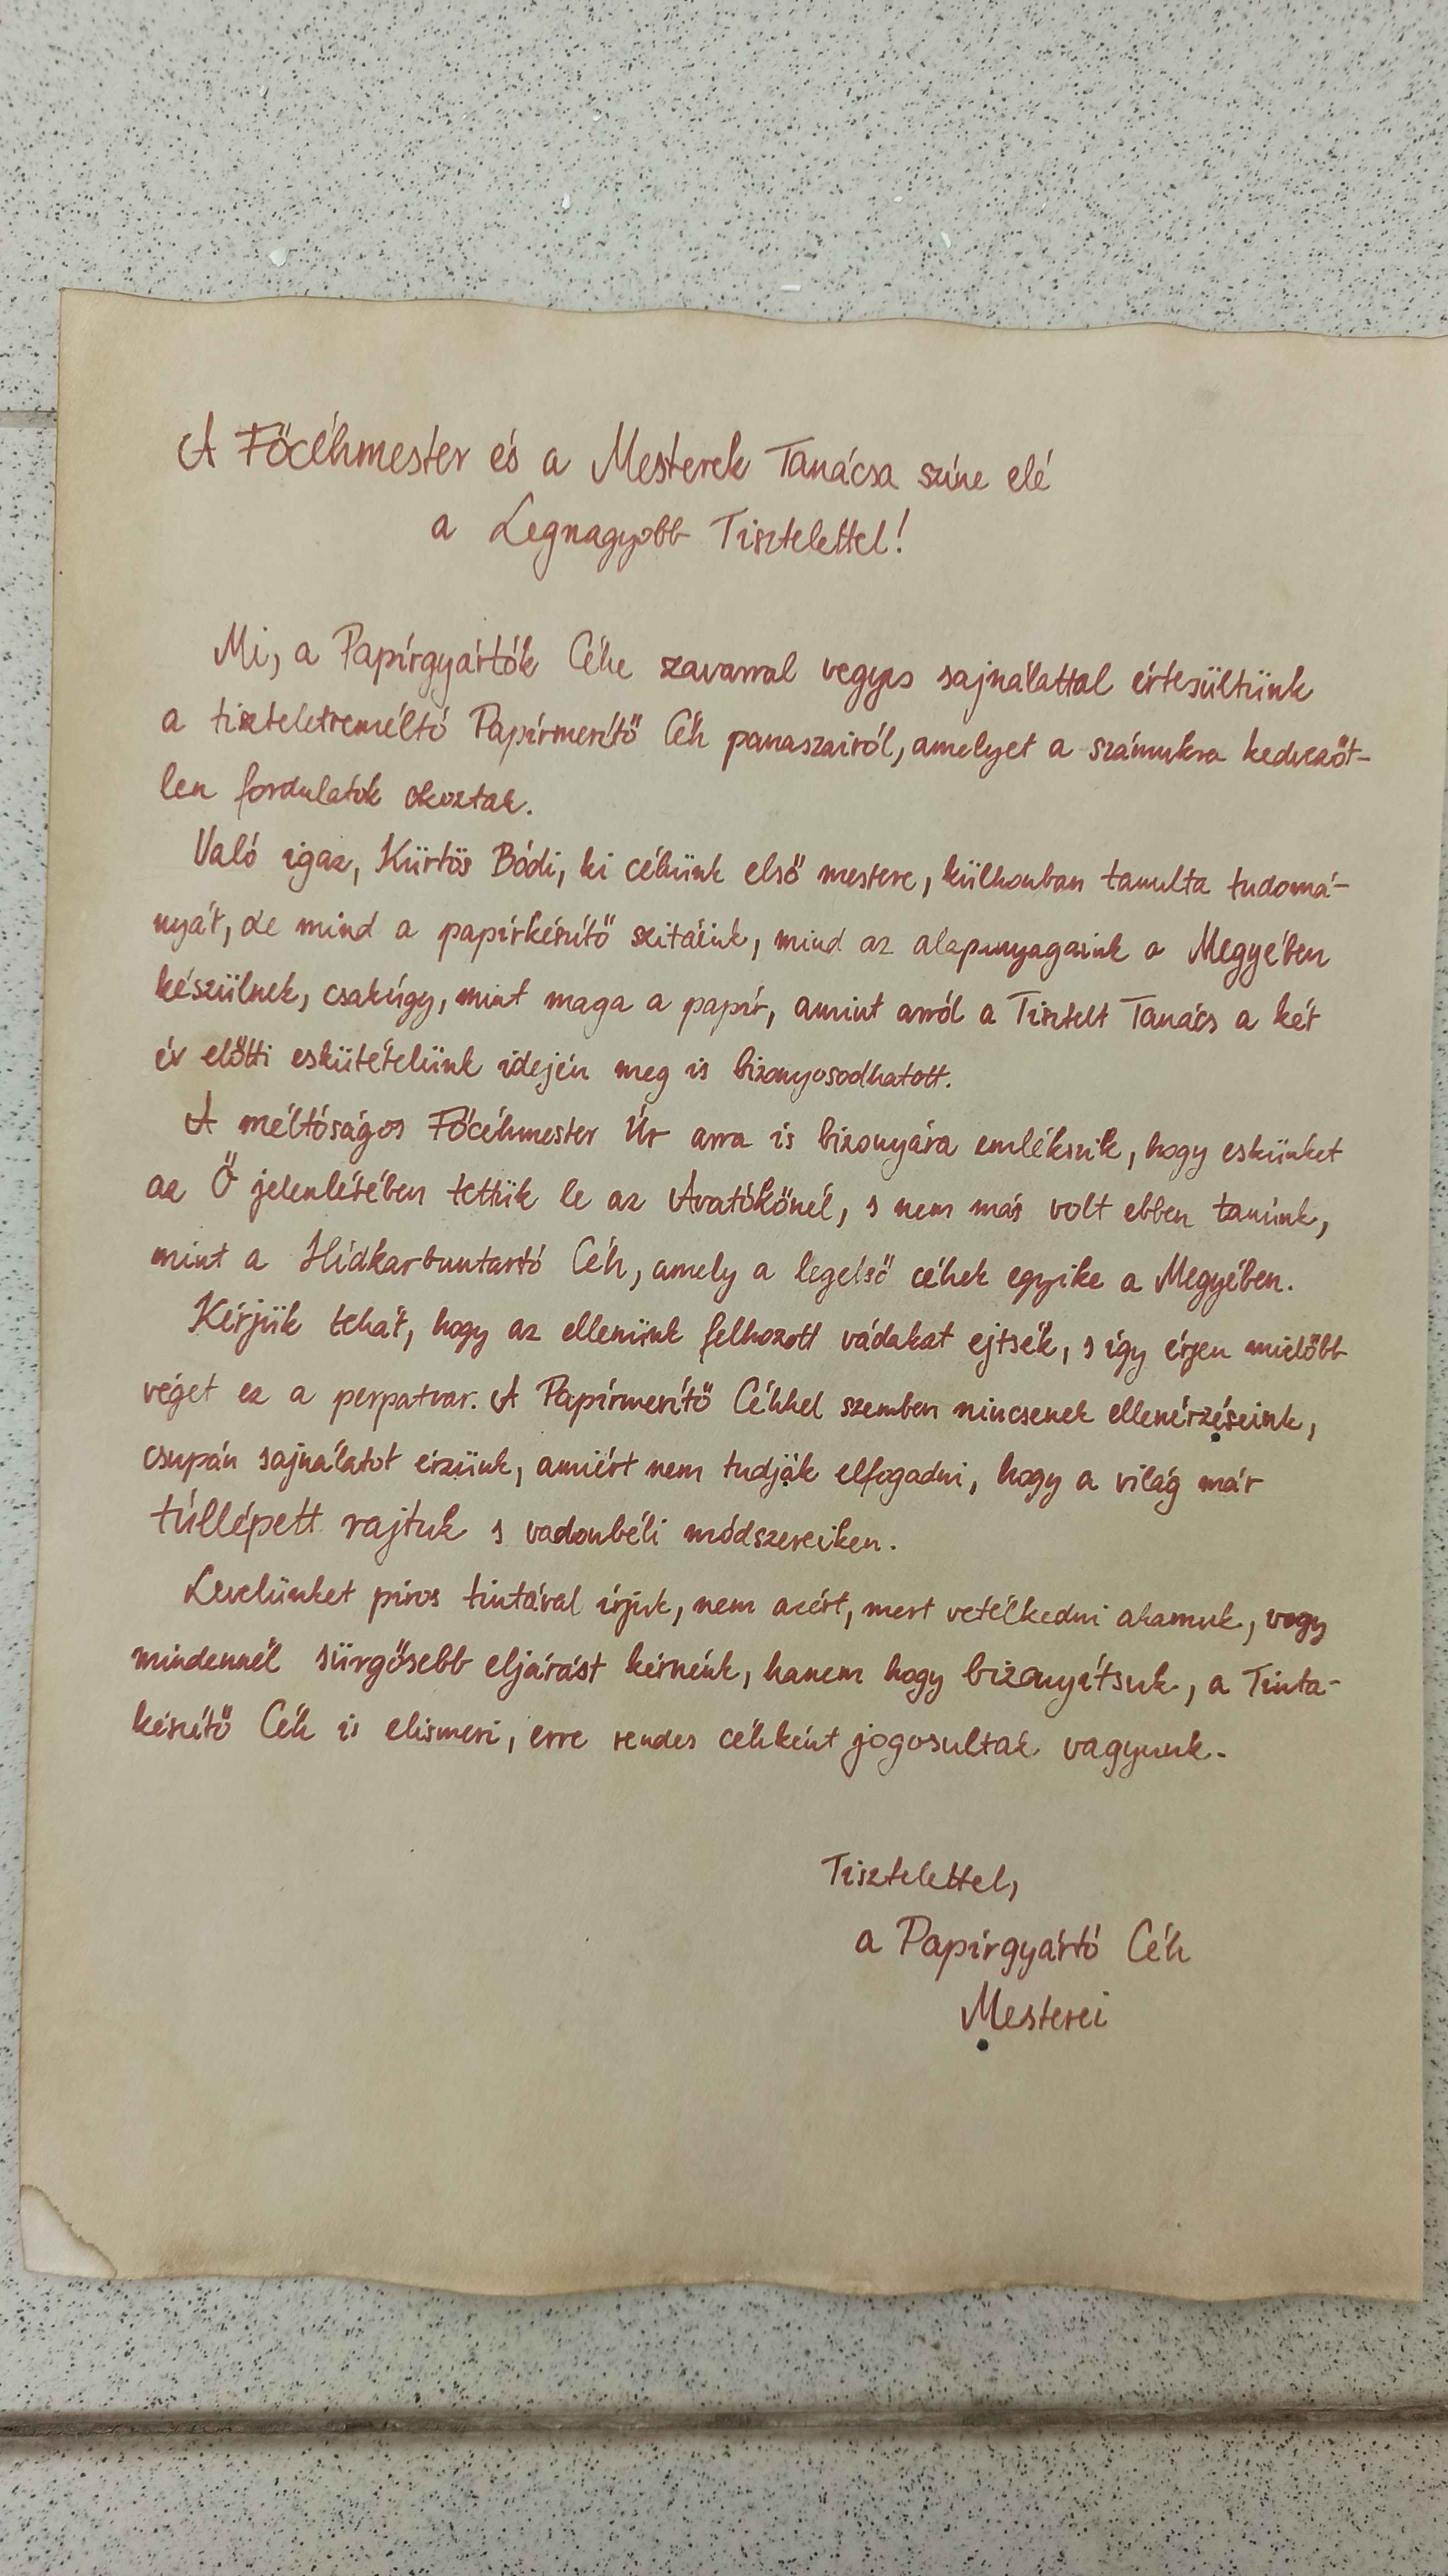 A Főcéhmester és a Mesterek Tanácsa színe elé
a Legnagyobb Tisztelettel!
Mi, a Papírgyártók Céhe zavarral vegyes sajnálattal értesültünk
a tiszteletreméltó Papírmerítő Céh panaszairól, amelyet a számukra kedvezőt-
len fordulatok okoztak.
Való igaz, Kürtös Bódi, ki céhünk első mestere, külhonban tanulta tudomá-
nyát, de mind a papírkészítő szitáink, mind az alapanyagaink a Megyében
készülnek, csakúgy, mint maga a papír, amint arról a Tisztelt Tanács a két
év előtti eskütételünk idején meg is bizonyosodhatott.
A méltóságos Főcéhmester Úr arra is bizonyára emlékszik, hogy eskünket
az Ő jelenlétében tettük le az Avatókőnél, s nem más volt ebben tanúnk,
mint a Hídkarbantartó Céh, amely a legelső céhek egyike a Megyében.
Kérjük tehát, hogy az ellenünk felhozott vádakat ejtsék, s így érjen mielőbb
véget ez a perpatvar. A Papírmerítő Céhhel szemben nincsenek ellenérzéseink,
csupán sajnálatot érzünk, amiért nem tudják elfogadni, hogy a világ már
túllépett rajtuk s vadonbéli módszereiken.
Levelünket piros tintával írjuk, nem azért, mert vetélkedni akarnuk, vagy
mindennél sürgősebb eljárást kérnénk, hanem hogy bizonyítsuk, a Tinta-
készítő Céh is elismeri, erre rendes céhként jogosultak vagyunk.
Tisztelettel,
a Papírgyártó Céh
Mesterei